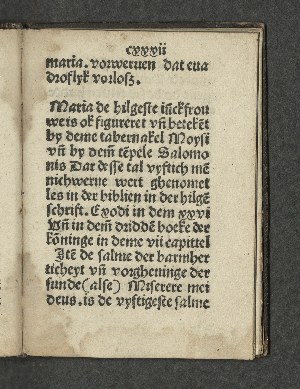 cxxvii
maria. vorweruen dat eua
droflyk vorloſz.
Maria de hilgeſte iūckfrou
we is ok figureret vñ betekēt
by deme tabernakel Moyſi
vñ by dem̄ tēpele Salomo
nis Dar deſſe tal vyftich mē
nichwerue wert ghenomet
les in der biblien in der hilgē
ſchrift. Exodi in dem xxvi
Vñ in dem̄ drīddē boeke der
kōninge in deme vii capittel
Itē de ſalme der barmher
ticheyt vñ vorgheuinge der
ſunde (alſe) Miſerere mei
deus. is de vyftigeſte ſalme